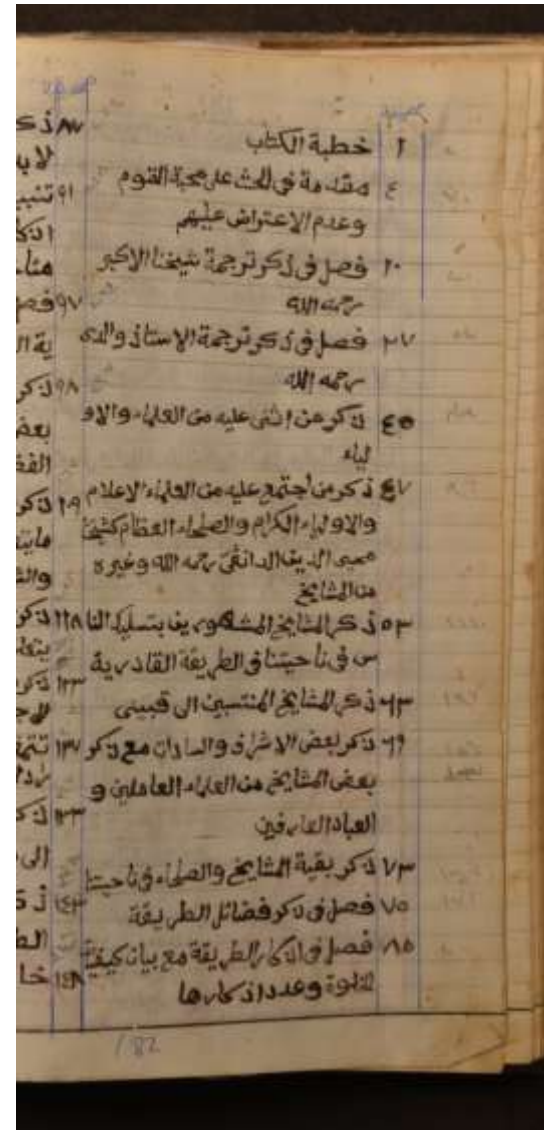 صحيفة
١ خطبة الكتاب
٤ مقدمة في الحث على محبة القوم
وعدم الاعتراض عليهم
١٠ فصل في ذكر ترجمة شيخنا الاكبر
رحمه الله
٢٧ فصل في ذكر ترجمة الاستاذ والدى
رحمه الله
٤٥ ذكر من اثنى عليه من العلماء والاو
لياء
٤٧ ذكر من أجتمع عليه من العلماء الاعلام
والاولياء الكرام والصلحاء العظام كشيخنا
محيى الدين رحمه الله وغيره
من المشايخ
٥٣ ذكر المشايخ المشهورين بتسليك النا
س في ناحيتنا في الطريقة القادرية
٦٣ ذكر المشايخ المنتسبين الى قبيسى
٦٩ ذكر بعض الاشراف والسادات مع ذكر
بعض المشايخ من العلماء العاملين و
العباد العارفين
٧٣ ذكر بقية المشايخ والصلحاء في ناحيتنا
٧٥ فصل في ذكر فضائل الطريقة
٨٥ فصل في اذكار الطريقة مع بيان كيفية
الخلوة وعدد اذكارها
182
٨٧ ذكر
٩١
٩٧ فصل
٩٨ ذكر
بعض
١٠٩ ذكر
١١٨ ذكر
١٢٣ ذكر
١٣٣ ذكر
الى
١٤٣
١٤٨